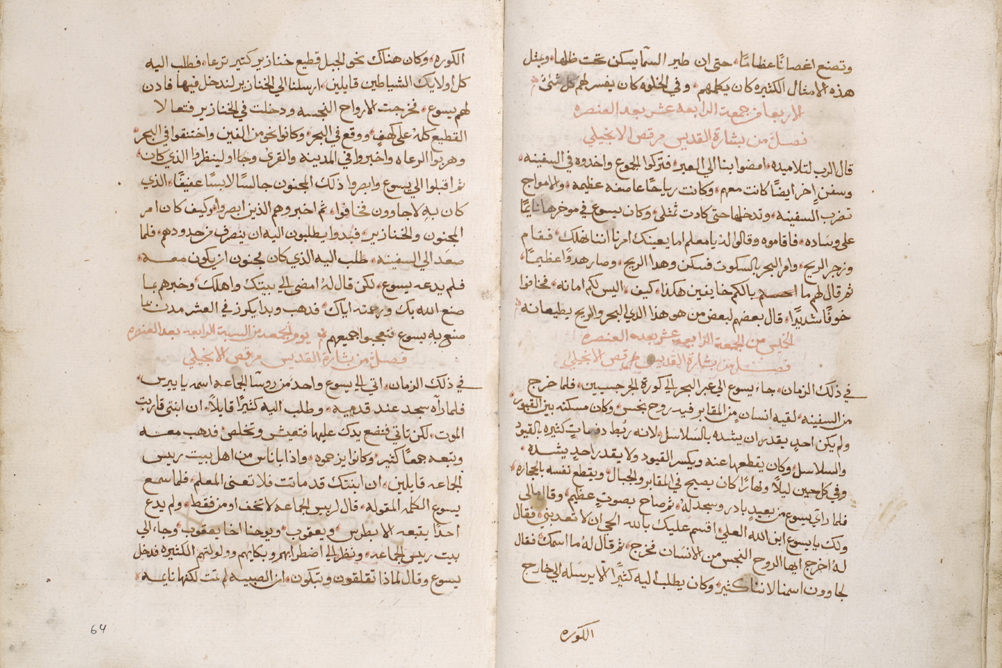 وتصنع اغصانًا عظامًا، حتى ان طير السما يسكن تحت ظلها، وبمثل
هذه الامثال الكثيره كان يكلمهم، وفي الخلوه كان يفسر لهم كل شئ
الاربعا من جمعة الرابعة عشر بعد العنصره
فصل من بشارة القديس مرقص الانجيلي
قال الرب لتلاميذه، امضوا بنا الى العبر، فتركوا الجموع واخدوه في السفينه،
وسفن اخر ايضًا كانت معهم، وكانت رياحًا عاصفه عظيمه، والامواج
تضرب السفينه، وتدخلها حتى كادت تمتلى، وكان يسوع في موخرها نايمًا
على وساده، فاقاموه وقالوا له يا معلم اما يعينك امرنا اننا نهلك، فقام
وزجر الريح، وامر البحر بالسكوت فسكن وهدا الريح، وصار هدوًا عظيمًا،
ثم قال لهم ما بالكم خايفين هكذا، كيف، اليس لكم امانه، فخافوا
خوفًا شديدًا، قال بعضهم لبعض من هو هذا الذي البحر والريح يطيعانه
الخميس من الجمعة الرابعة عشر بعد العنصره
فصل من بشارة القديس مرقص الانجيلي
في ذلك الزمان، جاء يسوع الى عبر البحر الى كورة الجرجسيين، فلما خرج
من السفينه، لقيه انسان من المقابر فيه روح نجس، وكان مسكنه بين القبور،
ولم يكن احد يقدر ان يشده بالسلاسل، لانه ربط دفعات كثيره بالقيود
والسلاسل، وكان يقطعها عنه ويكسر القيود ولا يقدر احد يشده،
وفي كل حين ليلًا ونهارًا كان يصيح في المقابر والجبال، ويقطع نفسه بالحجاره،
فلما راى يسوع من بعيد بادر وسجد له، ثم صاح بصوت عظيم، وقال مالي
ولك يا يسوع ابن الله العلي، اقسم عليك بالله الحي ان لا تعذبني، فقال
له اخرج ايها الروح النجس من الانسان فخرج، ثم قال له ما اسمك، فقال
لجاوون اسمنا لاننا كثير، وكان يطلب اليه كثيرًا الا يرسله الى خارج
الكوره
الكوره، وكان هناك نحو الجبل قطيع خنازير كتير ترعا، فطلب اليه
كل اوليك الشياطين قايلين، ارسلنا الى الخنازير لندخل فيها، فادن
لهم يسوع، فخرجت الارواح النجسه ودخلت في الخنازير، فتعالا
القطيع كله على كهف، ووقع في البحر، وكانوا نحو من الفين، واختنقوا في البحر،
وهربوا الرعاه واخبروا في المدينه والقرى، وجاوا لينظروا الذي كان،
ثم اقبلوا الى يسوع وابصروا ذلك المجنون جالسًا لابسًا عفيفًا، الذي
كان به لاجاوون فخافوا، ثم اخبروهم الذين ابصروا، وكيف كان امر
المجنون والخنازير، فبدوا يطلبون اليه ان ينصرف من حدودهم، فلما
صعد الى السفينه، طلب اليه الذي كان مجنون ان يكون معه،
فلم يدعه يسوع، لكن قال له امضي الى بيتك واهلك، وخبرهم بما
صنع الله بك ورحمته اياك، فدهب وبدا يكرز في العشر مدن بما
صنع به يسوع فتعجب جميعهم يوم الجمعه من السبة الرابعه بعد العنصره
فصل من بشارة القديس مرقص الانجيلي
في ذلك الزمان، اتى الى يسوع واحد من روسا الجماعه اسمه يايرس،
فلما رآه سجد عند قدميه، وطلب اليه كثيرًا قايلًا، ان ابنتى قاربت
الموت، لكن تاتي فتضع يدك عليها فتعيش وتخلص، فدهب معه
وتبعه جمعًا كثير، وكانوا يزحموه، واذا باناس من اهل بيت رييس
الجماعه قايلين، ان ابنتك قد ماتت فلا تعنى المعلم، فلما سمع
يسوع الكلمه المقوله، قال لرييس الجماعه لا تخف اومن فقط، ولم يدع
احدًا يتبعه الا بطرس، ويعقوب، ويوحنا اخا يعقوب، وجاء الى
بيت رييس الجماعه، ونظر الى اضطرابهم وبكايهم وولولتهم الكثيره فدخل
يسوع وقال لماذا تقلقون وتبكون، ان الصبيه لم تمت لكنها نايمه،
64